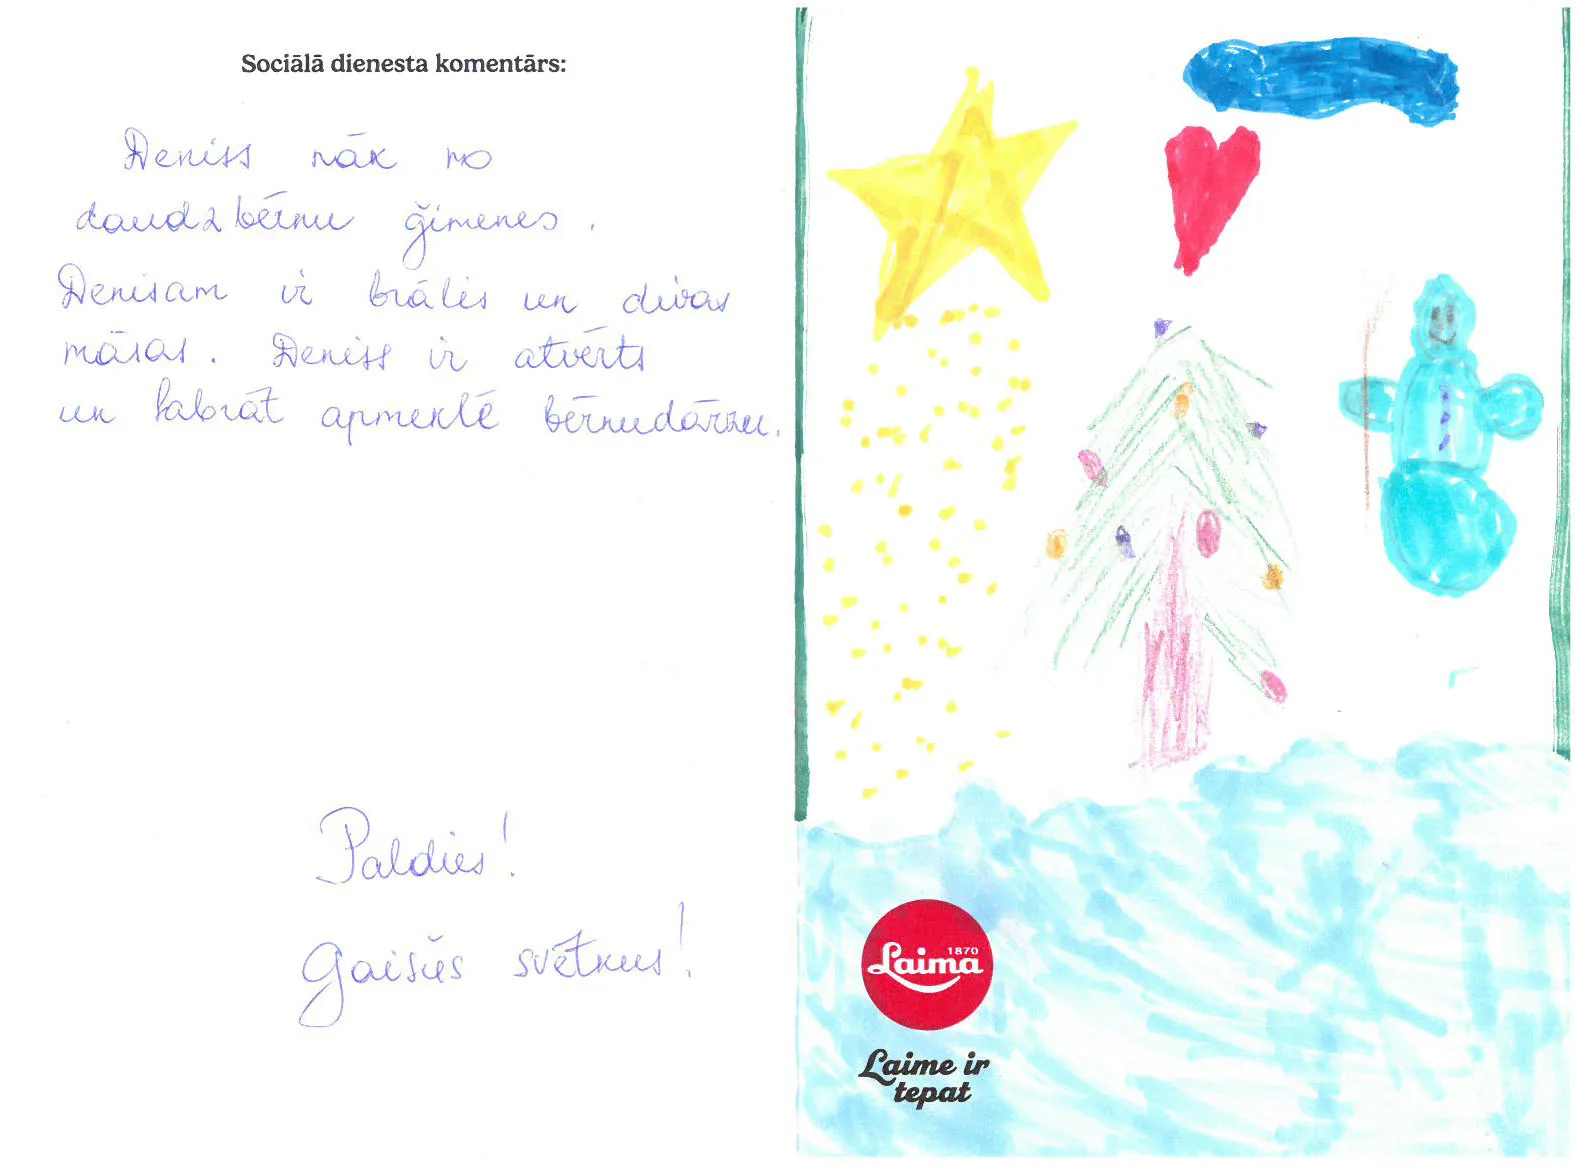 Sociālā dienesta komentārs:
Deniss nāk no
daudzbērnu ģimenes.
Denisam ir brālis un divas
māsas. Deniss ir atvērts
un labrāt apmeklē bērnudārzu.
Paldies!
Gaišus svētkus!
1870
Laima
Laime ir
tepat